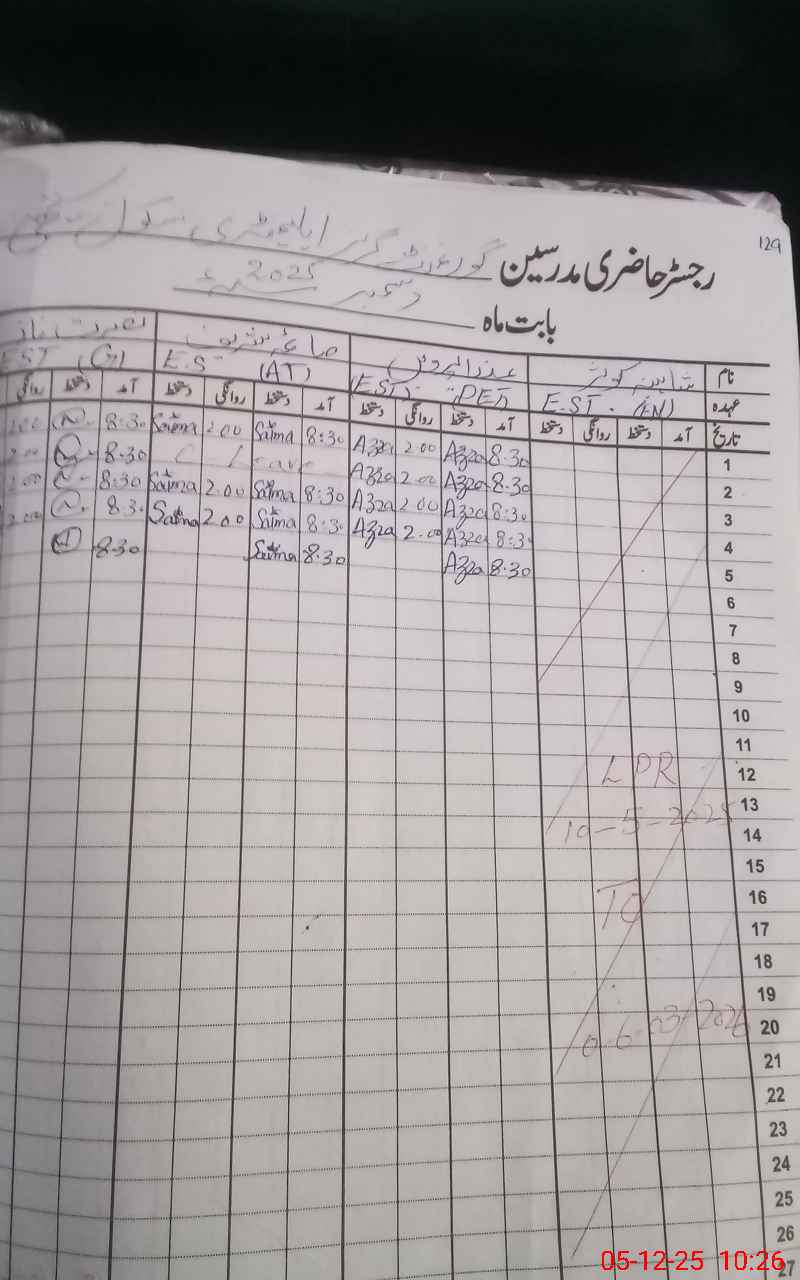 129
رجسٹر حاضری مدرسین گورنمنٹ گرلز ایلیمنٹری سکول
بابت ماہ دسمبر 2025ء
نام شاہین کوثر عذرا پروین صائمہ شریف نصرت ناز
عہدہ E.ST. (EN) (EST) (PET) E.ST (AT) EST (G)
تاریخ آمد دستخط روانگی دستخط آمد دستخط روانگی دستخط آمد دستخط روانگی دستخط آمد دستخط روانگی
1 8.30 Azra 2.00 Azra 8:30 Saima 2.00 Saima 8.30 2.00
2 8.30 Azra 2.00 Azra Leave 8.30 2.00
3 8:30 Azra 2.00 Azra 8:30 Saima 2.00 Saima 8.30 2.00
4 8:3. Azra 2.00 Azra 8:3. Saima 2.00 Saima 8.3. 2.00
5 8.30 Azra 8.30 Saima 8.30
6
7
8
9
10
11
12 LPR
13
14 10-5-2025
15
16
17 TO
18
19
20 06.03/2026
21
22
23
24
25
26
27
05-12-25 10:26